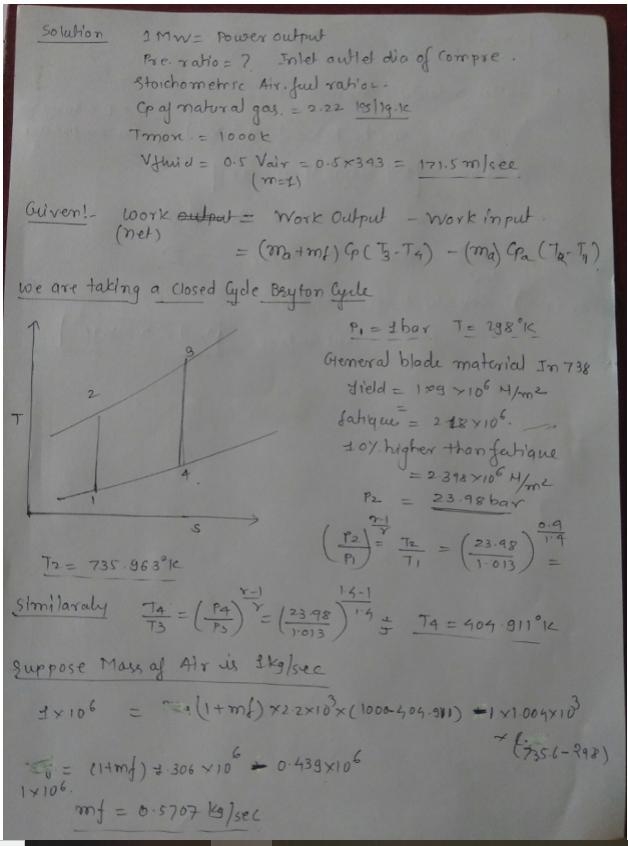 Solution 1 MW = Power output
Pre. ratio = ? Inlet outlet dia of Compre.
Stoichometric Air. fuel ratio.
Cp of natural gas. = 2.22
Tmax = 1000 k
Vfluid = 0.5 Vair = 0.5×343 = 171.5 m/sec
(m=1)
Given:- work output = Work Output - Work input.
(net)
= (ma+mf) Cp (T3-T4) - (ma) Cpa (T2-T1)
we are taking a Closed Cycle Bryton Cycle
P1 = 1 bar T = 298°K
General blade material In 738
yield = 1.09 × 10^6 N/m2
fatique = 2.18×10^6.
10% higher than fatique
= 2.398×10^6 N/m2
P2 = 23.98 bar
T
1
2
3
4
S
(P2/P1)^(r-1/r) = T2/T1 = (23.98/1.013)^(0.4/1.4) =
T2 = 735.963°K
Similaraly T4/T3 = (P4/P3)^(r-1/r) = (23.98/1.013)^(1.4-1/1.4) = T4 = 404.911°K
Suppose Mass of Air is 1kg/sec
1×10^6 = (1+mf) ×2.2×10^3×(1000-404.911) - 1×1.004×10^3
×(735.6-298)
1×10^6 = (1+mf) 1.306 ×10^6 - 0.439×10^6
mf = 0.5707 kg/sec